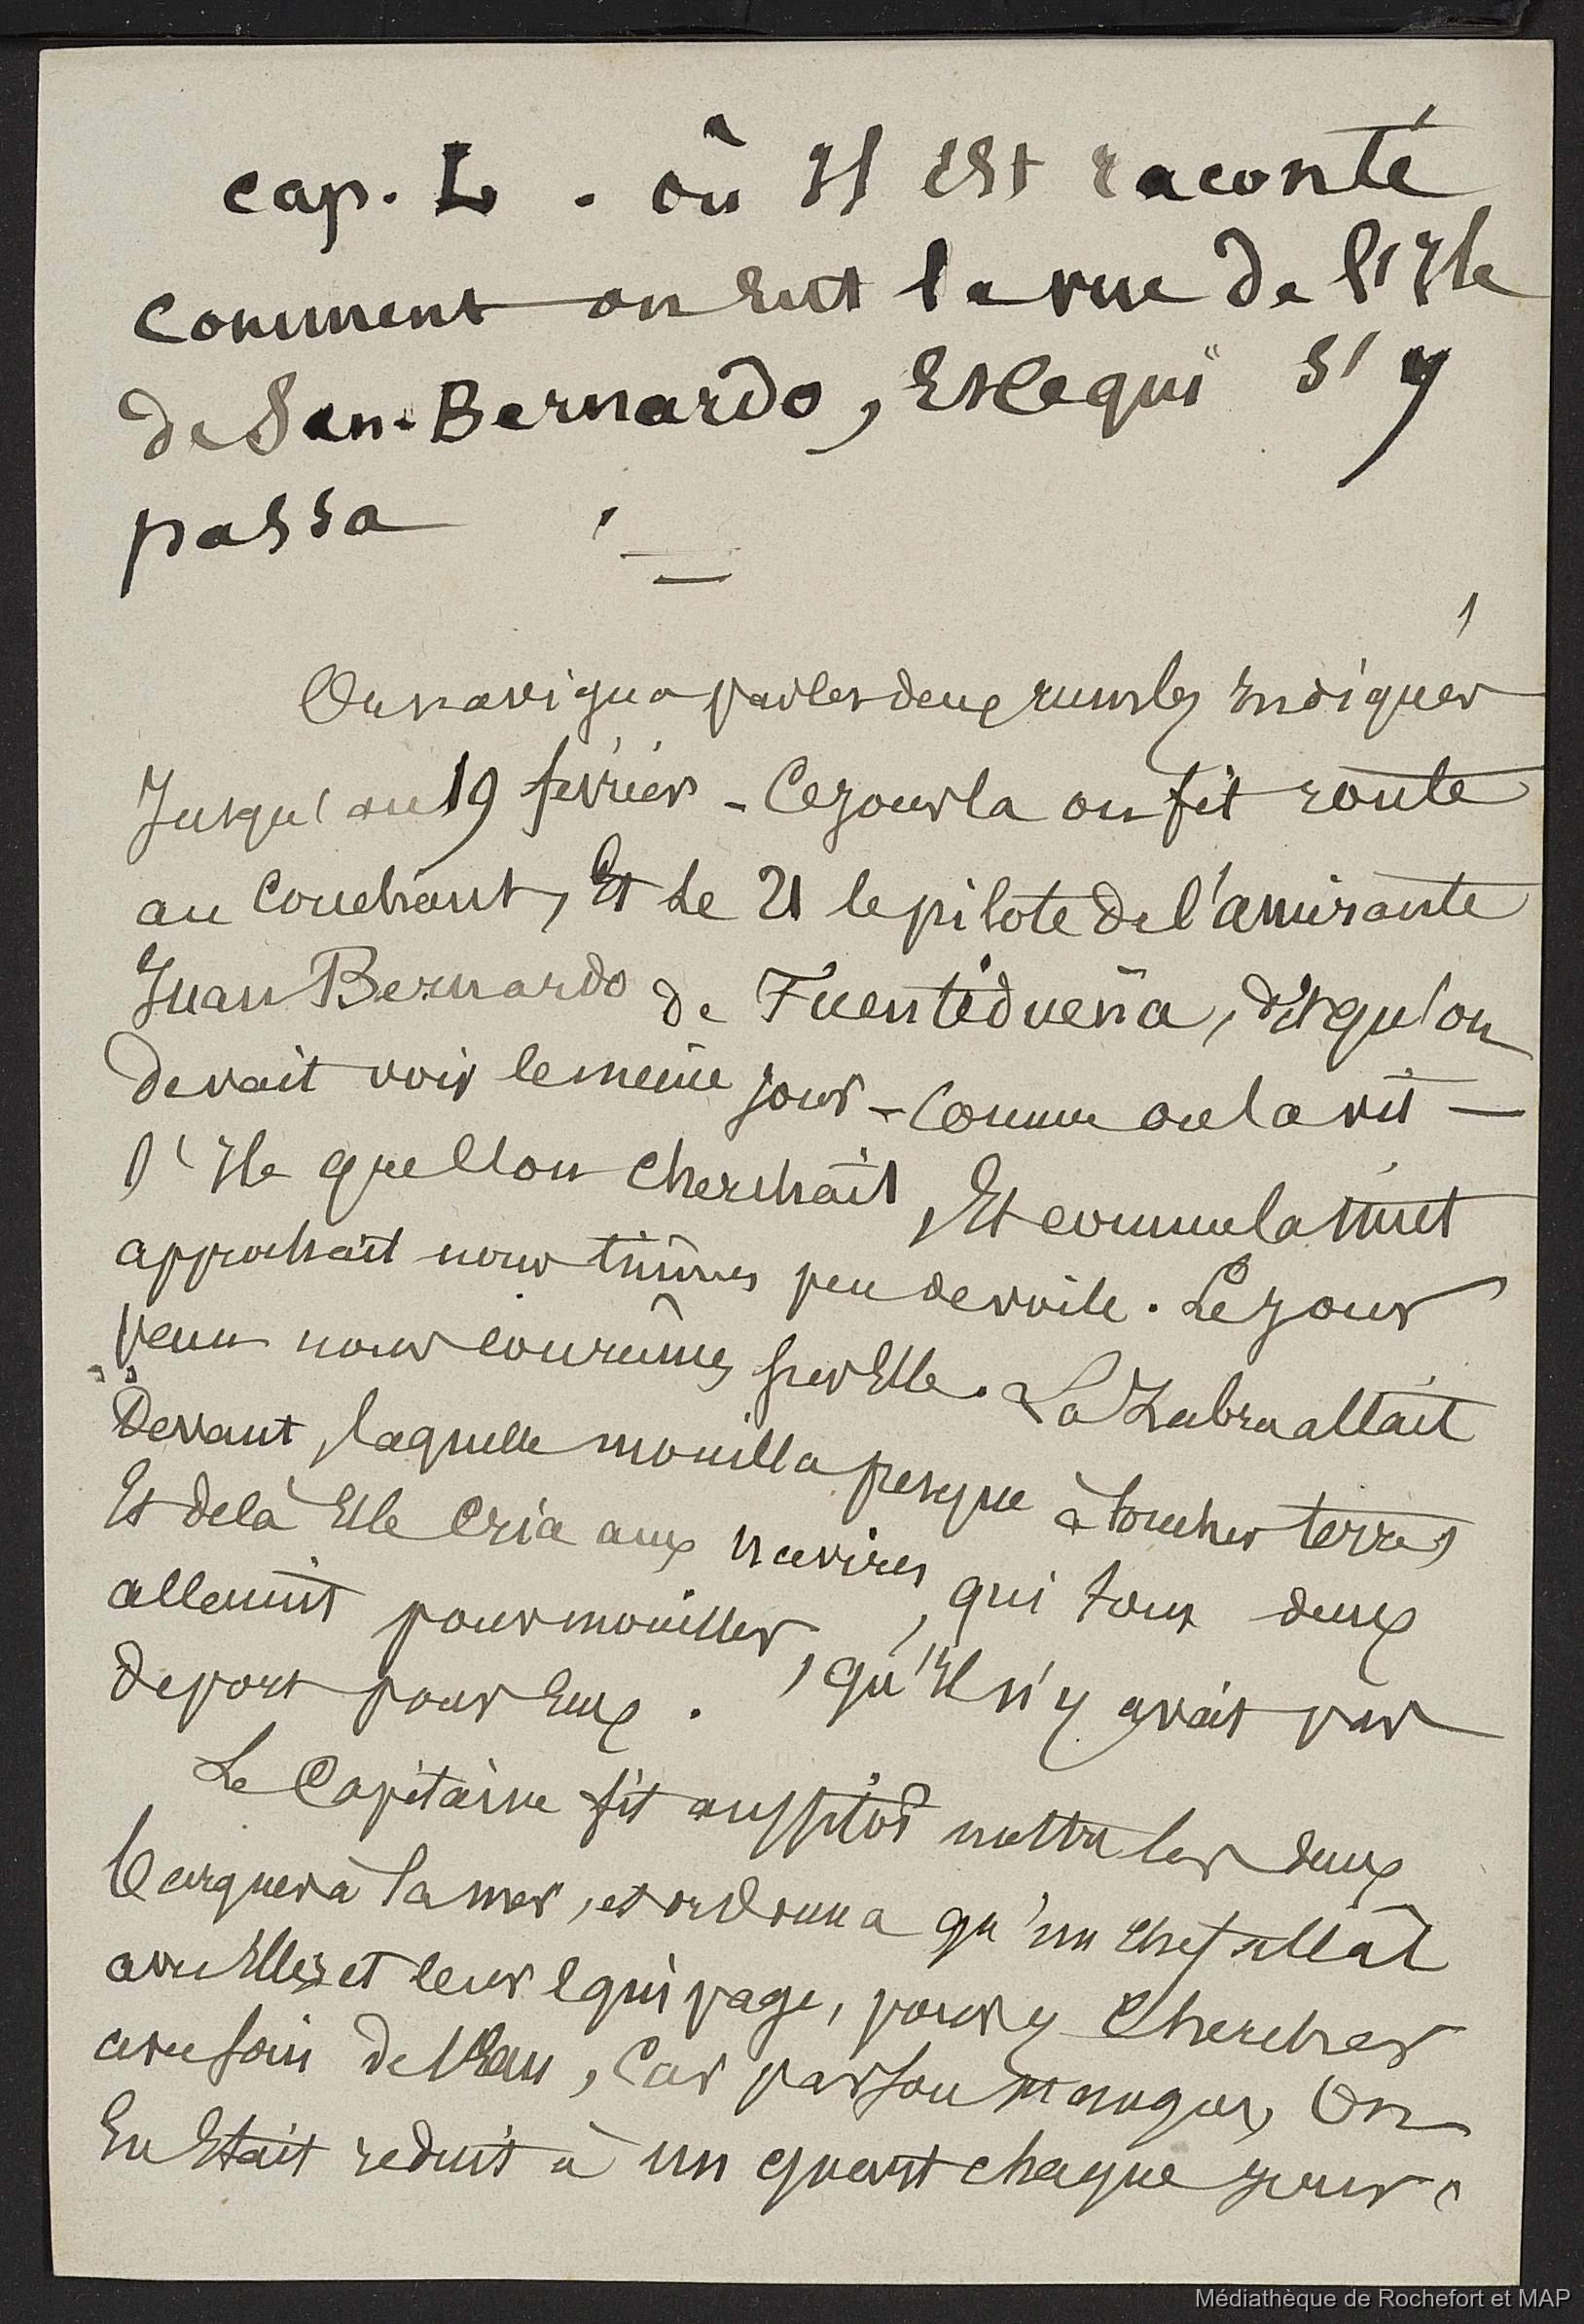 cap. L. où Il Est raconté
comment on Eut la vue de l'Ile
de San-Bernardo, Et ce qui s'y
passa.
On navigua par les deux rumbs Indiqués
Jusqu'au 19 février - Ce jour la on fit route
au Couchant, Et Le 21 le pilote de l'amirante
Juan Bernardo de Fuentidueña, dit qu'on
devait voir le même jour - Comme on la vit -
l'Ile que l'on Cherchait, Et comme la nuit
approchait nous tinmes peu de voile. Le jour
venu nous courûmes sur Elle. La Zabra allait
Devant, laquelle mouilla presque à toucher terre,
Et de là Elle Cria aux navires, qui tous deux
allaient pour mouiller, qu'Il n'y avait pas
de port pour Eux.
Le Capitaine fit aussitôt mettre les deux
barques à la mer, et ordonna qu'un Chef allât
avec Elles et leur Equipage, pour y Chercher
avec soin de l'Eau, Car par son manque, On
En Etait reduit à un quart chaque jour.
Médiathèque de Rochefort et MAP